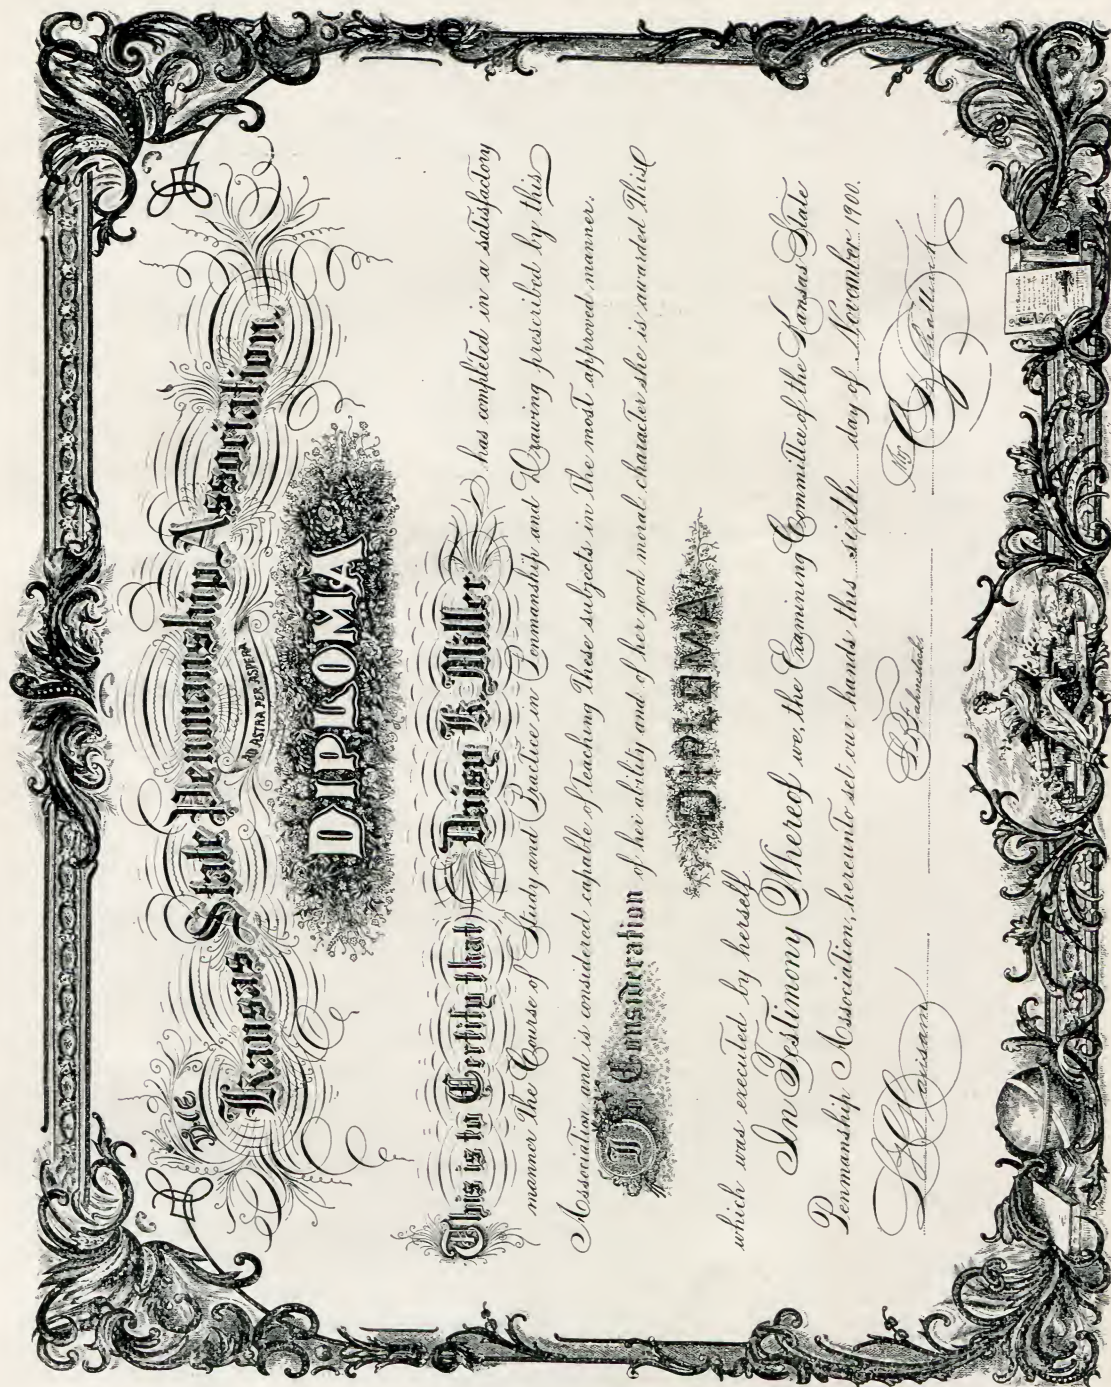 The
Kansas State Penmanship Association.
AD ASTRA PER ASPERA
DIPLOMA
This is to Certify that Daisy K. Miller has completed in a satisfactory
manner the Course of Study and Practice in Penmanship and Drawing prescribed by this
Association and is considered capable of teaching these subjects in the most approved manner.
In Consideration of her ability and of her good moral character she is awarded This
DIPLOMA
which was executed by herself
In Testimony Whereof we, the Examining Committee of the Kansas State
Penmanship Association, hereunto set our hands this sixth day of November 1900.
L. B. Fahnestock